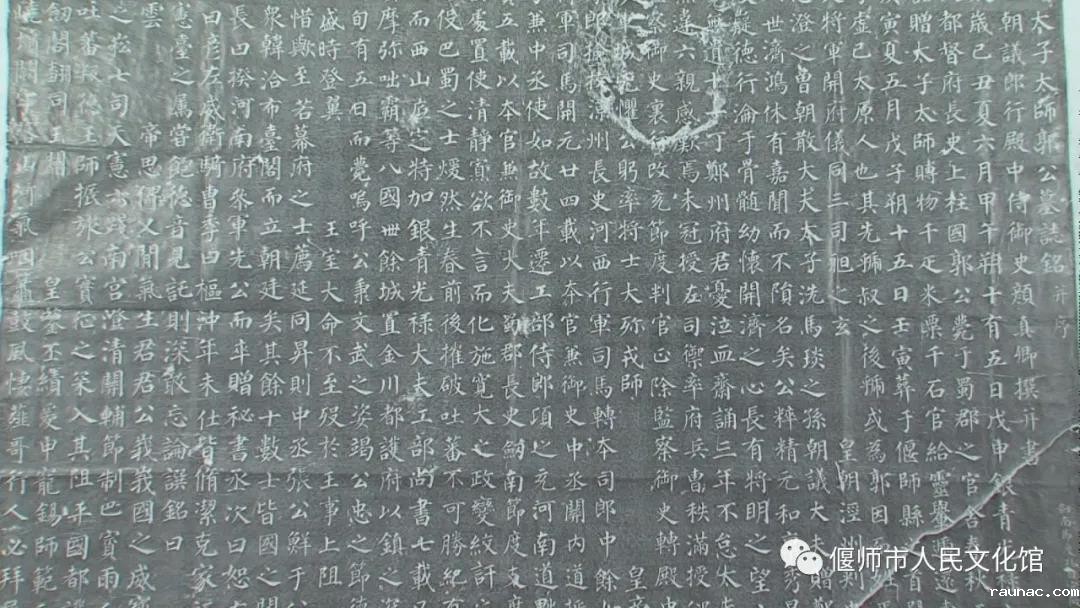 太子太師郭公墓誌銘并序
朝議郎行殿中侍御史顏真卿撰并書
歲己丑夏六月甲午朔十有五日戊申銀青光祿
都督府長史上柱國郭公薨于蜀郡之官舍春秋
贈太子太師賻物千疋米粟千石官給靈轝遞
寅夏五月戊子朔十五日壬寅葬于偃師縣首
字虛己太原人也其先虢叔之後虢或爲郭因
大將軍開府儀同三司祖之玄 皇朝涇州刺
澄之曾朝散大夫太子洗馬琰之孫朝議大夫贈鄭
世濟鴻休有嘉聞而不隕名矣公粹精元和含秀
凝德行淪于骨髓幼懷開濟之心長有將明之望
道士十丁鄭州府君憂泣血齋誦三年不怠太
違六親感歎焉未冠授左司禦率府兵曹秩滿授
察御史裏改充節度判官正除監察御史轉殿中
城兇懼公躬率將士大殄戎師
郎撿挍涼州長史河西行軍司馬轉本司郎中餘如
軍司馬開元廿四載以本官兼御史中丞關內道
兼中丞使如故數年遷工部侍郎頃之充河南道黜
五載以本官兼御史大夫蜀郡長史劒南節度支度
處置使清靜寡欲不言而化施寬大之政變紋訐
使巴蜀之士煖然生春前後摧破吐蕃不可勝紀有
而西山底定特加銀青光祿大夫工部尚書七載又
摩弥咄霸等八國卅餘城置金川都護府以鎮之
旬有五日而薨嗚呼公秉文武之姿竭公忠之節德
盛時登翼 王室大命不至歿於王事上阻
惜歟至若幕府之士薦延同昇則中丞張公鮮于公
衆韓洽布臺閣而立朝廷矣其餘十數士皆國之聞
長曰揆河南府參軍先公而卒贈祕書丞次曰恕太
曰彥左威衛騎曹季曰樞沖年未仕皆脩潔克家
憲臺之屬嘗飽德音見託則深敢忘論譔銘曰
雲 帝思俾乂間氣生君君公峩峩國之威寶
之崧七司天憲六踐南宮澄清關輔節制巴賨雨
吐蕃叛德王師抵張公實征之罙入其阻平國都護
劒閣翻同玉壘 皇鑒丕績爰申寵錫師範
山河氣四塞鼓風悽薤哥行人必拜
偃师市人民文化馆
raunac.com